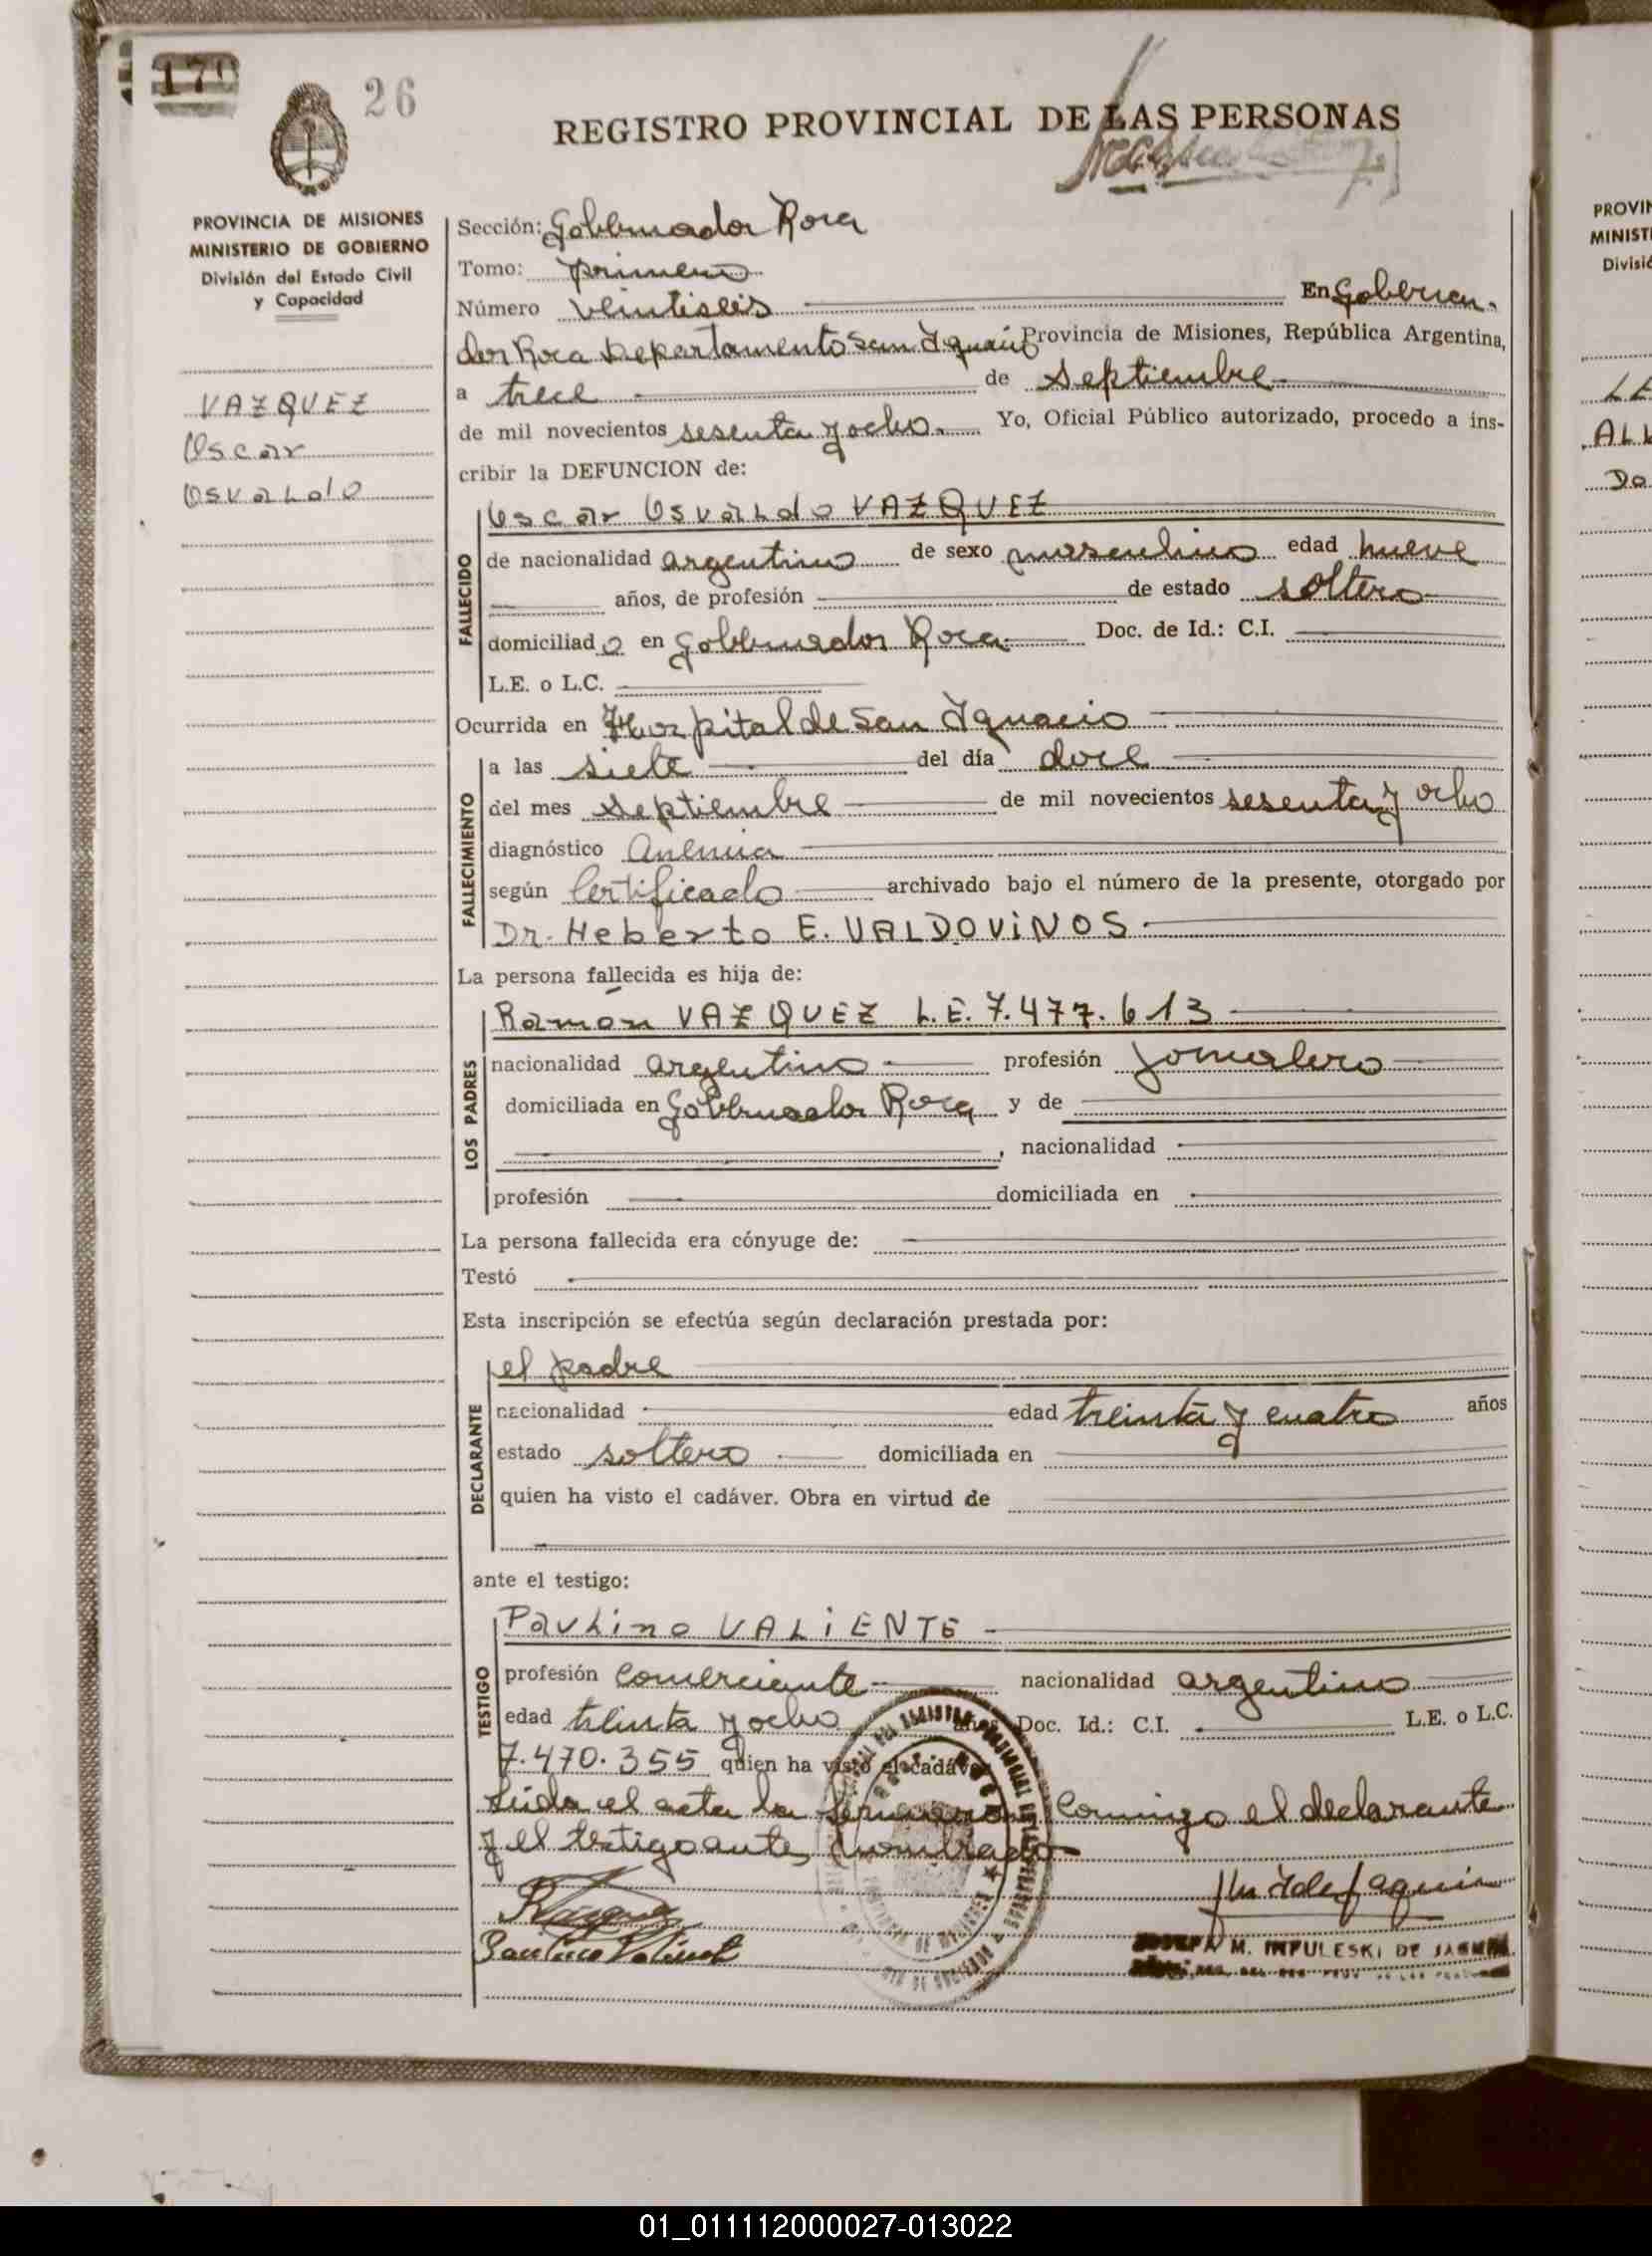 26
REGISTRO PROVINCIAL DE LAS PERSONAS
PROVINCIA DE MISIONES
MINISTERIO DE GOBIERNO
División del Estado Civil
y Capacidad
VAZQUEZ
Oscar
Osvaldo
Sección: Gobernador Roca
Tomo: primero
Número veintiseis En Goberna-
dor Roca Departamento San Ignacio Provincia de Misiones, República Argentina,
a trece de Septiembre
de mil novecientos sesenta y ocho. Yo, Oficial Público autorizado, procedo a ins-
cribir la DEFUNCION de:
FALLECIDO
Oscar Osvaldo VAZQUEZ
de nacionalidad argentino de sexo masculino edad nueve
años, de profesión de estado soltero
domiciliado en Gobernador Roca Doc. de Id.: C.I.
L.E. o L.C.
Ocurrida en Hospital de San Ignacio
FALLECIMIENTO
a las siete del día doce
del mes septiembre de mil novecientos sesenta y ocho
diagnóstico Anemia
según Certificado archivado bajo el número de la presente, otorgado por
Dr. Heberto E. VALDOVINOS
La persona fallecida es hija de:
LOS PADRES
Ramon VAZQUEZ L.E. 7.477.613
nacionalidad argentino profesión Jornalero
domiciliada en Gobernador Roca y de
, nacionalidad
profesión domiciliada en
La persona fallecida era cónyuge de:
Testó
Esta inscripción se efectúa según declaración prestada por:
DECLARANTE
el padre
nacionalidad edad treinta y cuatro años
estado soltero domiciliada en
quien ha visto el cadáver. Obra en virtud de
ante el testigo:
TESTIGO
Paulino VALIENTE
profesión comerciante nacionalidad argentino
edad treinta y ocho años Doc. Id.: C.I. L.E. o L.C.
7.470.355 quien ha visto el cadáver
Leida el acta la firmaron Conmigo el declarante
y el testigo antes nombrado
M. IMPULESKI DE
PROVIN
MINIST
Divisió
LE
AL
Do
01_011112000027-013022